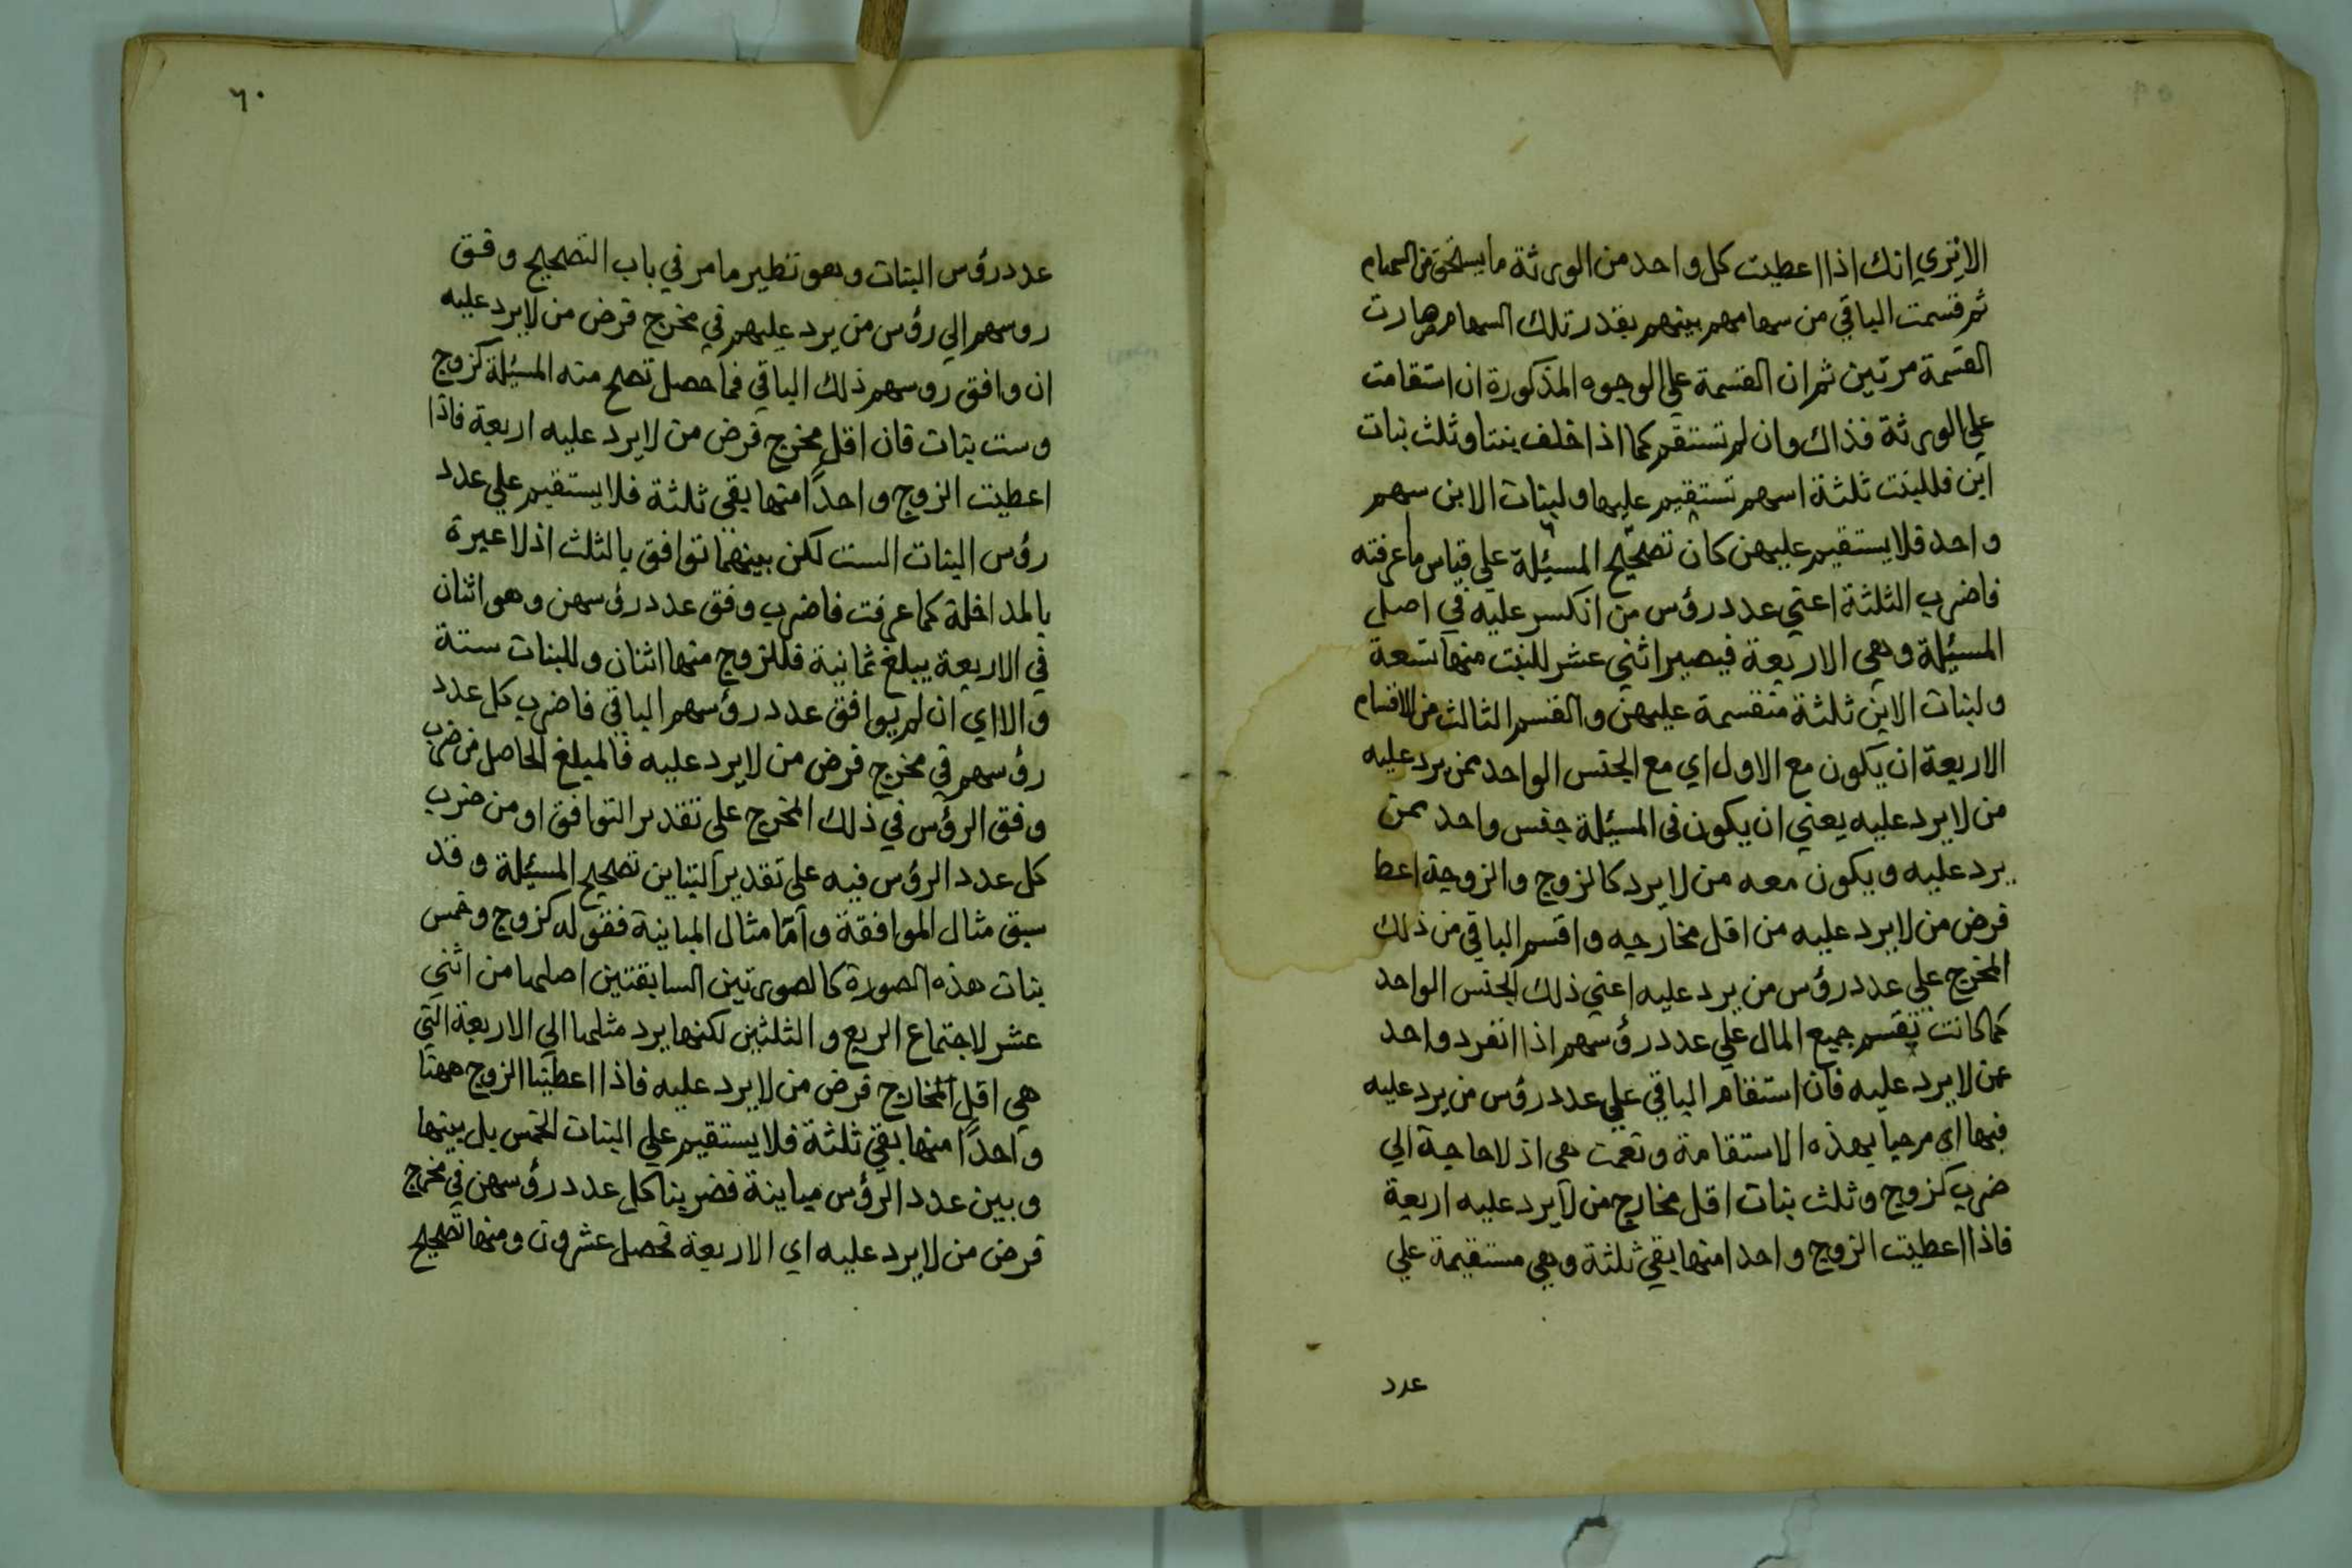 الا تري انك اذا اعطيت كل واحد من الورثة ما يستحق من السهام
ثم قسمت الباقي من سهامهم بينهم بقدر تلك السهام صارت
القسمة مرتين ثم ان القسمة علي الوجوه المذكورة ان استقامت
علي الورثة فذاك وان لم تستقم كما اذا خلف بنتا وثلث بنات
ابن فللبنت ثلثة اسهم تستقيم عليها ولبنات الابن سهم
واحد فلا يستقيم عليهن كان تصحيح المسئلة علي قياس ما عرفته
فاضرب الثلثة اعني عدد رؤس من انكسر عليه في اصل
المسئلة وهي الاربعة فيصير اثني عشر للبنت منها تسعة
ولبنات الابن ثلثة منقسمة عليهن والقسم الثالث من الاقسام
الاربعة ان يكون مع الاول اي مع الجنس الواحد ممن يرد عليه
من لا يرد عليه يعني ان يكون في المسئلة جنس واحد ممن
يرد عليه ويكون معه من لا يرد كالزوج والزوجة اعط
فرض من لا يرد عليه من اقل مخارجه واقسم الباقي من ذلك
المخرج علي عدد رؤس من يرد عليه اعني ذلك الجنس الواحد
كما كانت تقسم جميع المال علي عدد رؤسهم اذا انفرد واحد
عمن لا يرد عليه فان استقام الباقي علي عدد رؤس من يرد عليه
فبها اي مرحبا بهذه الاستقامة ونعمت هي اذ لا حاجة الي
ضرب كزوج وثلث بنات اقل مخارج من لا يرد عليه اربعة
فاذا اعطيت الزوج واحدا منها بقي ثلثة وهي مستقيمة علي
عدد
٦٠
عدد رؤس البنات وهو نظير ما مر في باب التصحيح وفق
روسهم الي رؤس من يرد عليهم في مخرج فرض من لا يرد عليه
ان وافق روسهم ذلك الباقي فما حصل تصح منه المسئلة كزوج
وست بنات فان اقل مخرج فرض من لا يرد عليه اربعة فاذا
اعطيت الزوج واحدًا منها بقي ثلثة فلا يستقيم علي عدد
رؤس البنات الست لكن بينهما توافق بالثلث اذ لا عبرة
بالمداخلة كما عرفت فاضرب وفق عدد رؤسهن وهو اثنان
في الاربعة يبلغ ثمانية فللزوج منها اثنان وللبنات ستة
والا اي ان لم يوافق عدد رؤسهم الباقي فاضرب كل عدد
رؤسهم في مخرج فرض من لا يرد عليه فالمبلغ الحاصل من ضرب
وفق الرؤس في ذلك المخرج علي تقدير التوافق او من ضرب
كل عدد الرؤس فيه علي تقدير التباين تصحيح المسئلة وقد
سبق مثال الموافقة وامّا مثال المباينة فقوله كزوج وخمس
بنات هذه الصورة كالصورتين السابقتين اصلها من اثني
عشر لاجتماع الربع والثلثين لكنها يرد مثلها الي الاربعة التي
هي اقل المخارج فرض من لا يرد عليه فاذا اعطينا الزوج ههنا
واحدًا منها بقي ثلثة فلا يستقيم علي البنات الخمس بل بينها
وبين عدد الرؤس مباينة فضربنا كل عدد رؤسهن في مخرج
فرض من لا يرد عليه اي الاربعة تحصل عشرون ومنها تصحيح